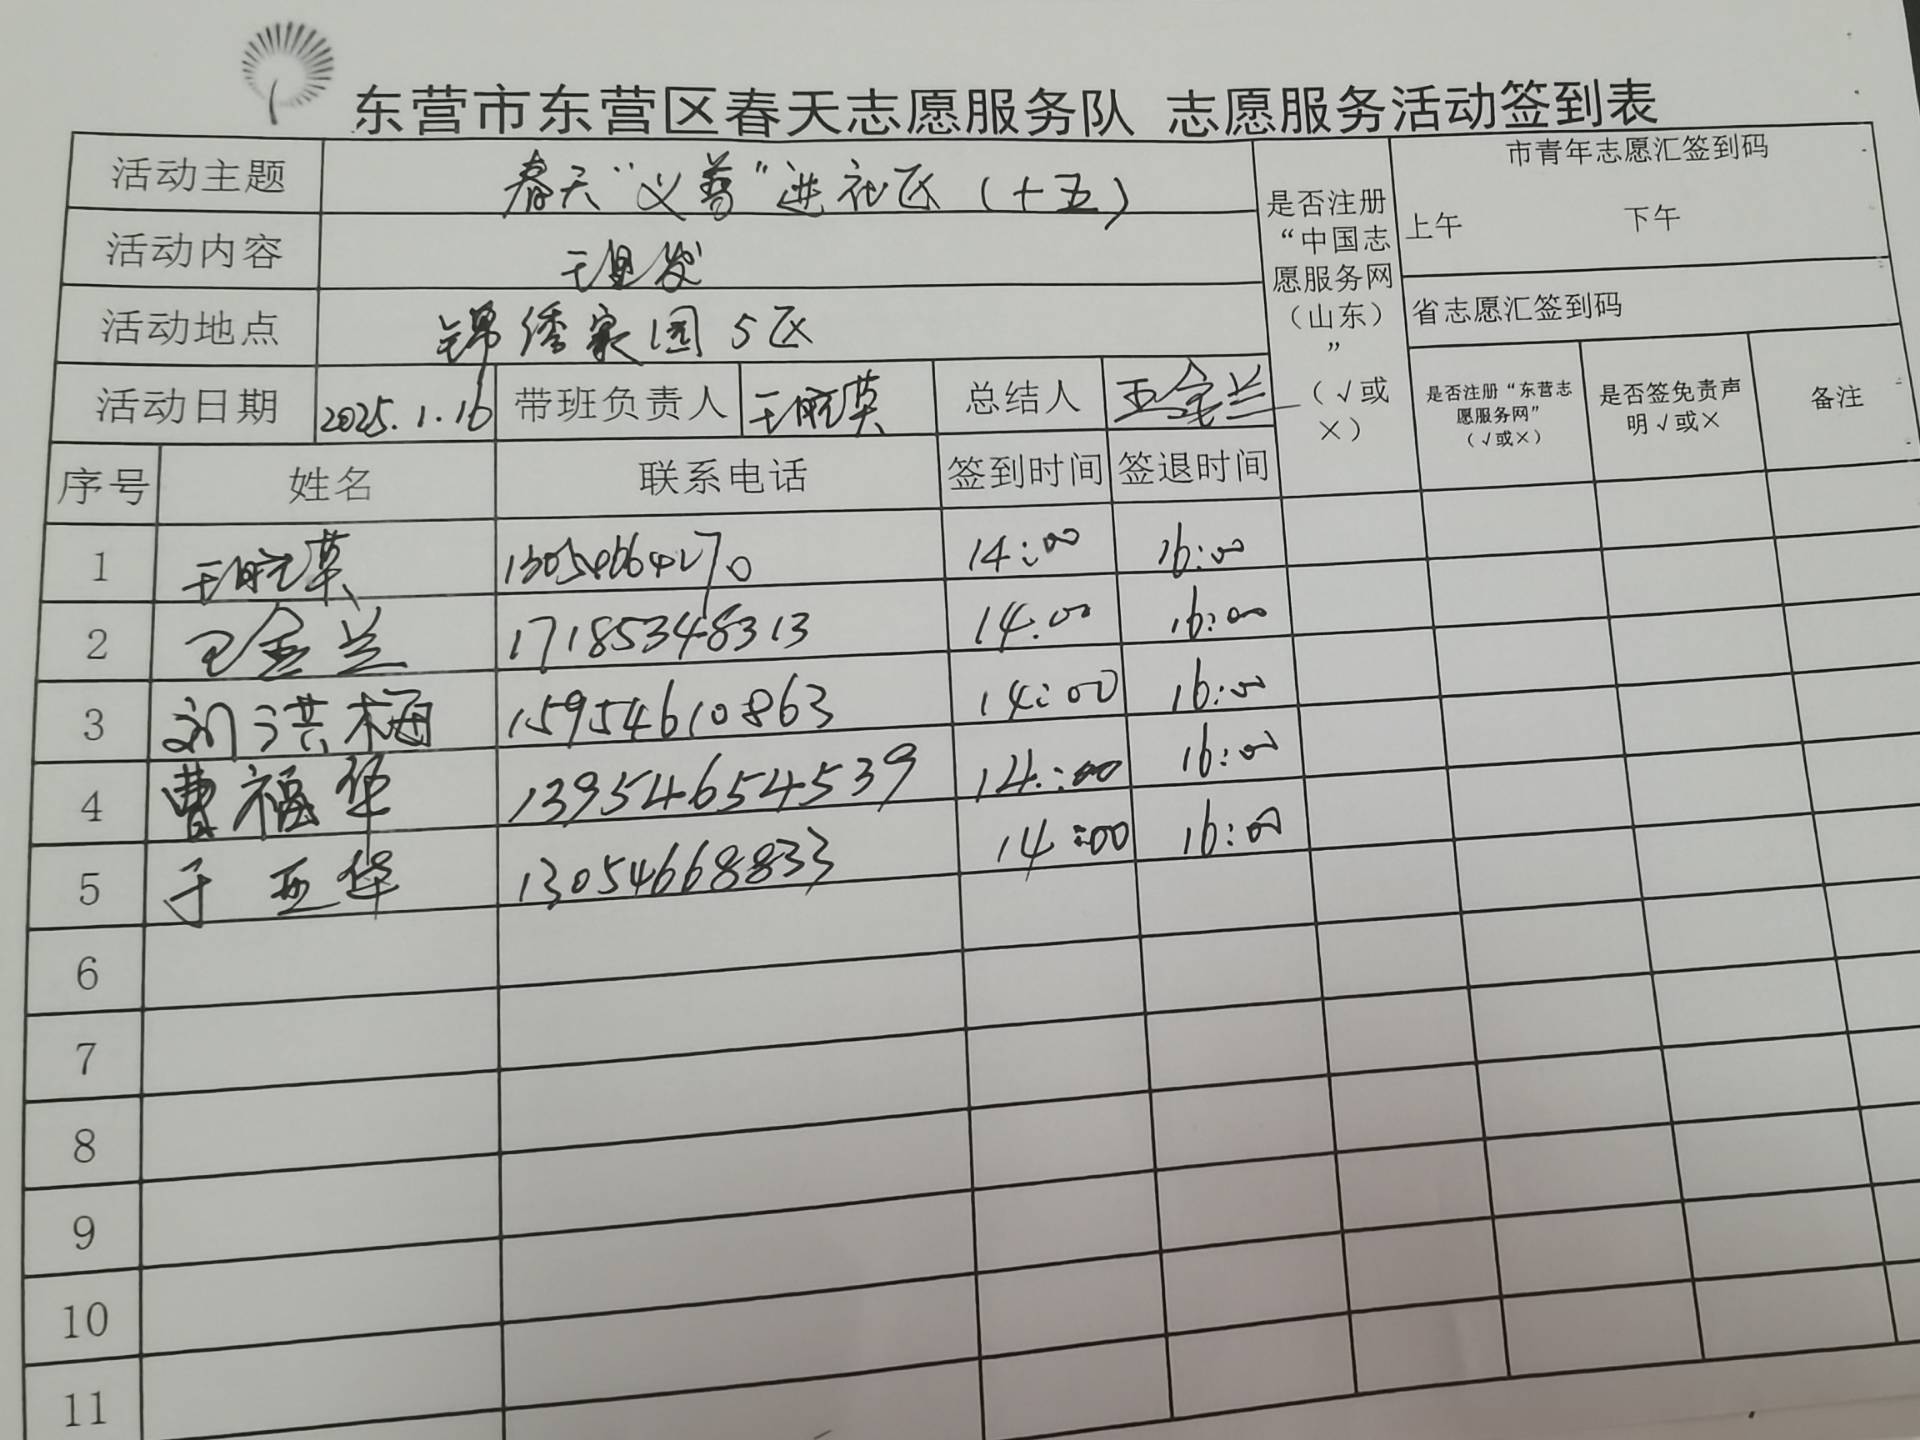 东营市东营区春天志愿服务队 志愿服务活动签到表
活动主题 春天“义剪”进社区（十五） 是否注册“中国志愿服务网（山东）”（√或×） 市青年志愿汇签到码
上午 下午
活动内容
活动地点 锦绣家园5区 省志愿汇签到码
活动日期 2025.1.16 带班负责人 总结人 王金兰 是否注册“东营志愿服务网”（√或×） 是否签免责声明√或× 备注
序号 姓名 联系电话 签到时间 签退时间
1 14:00 16:00
2 王金兰 17185348313 14:00 16:00
3 刘洪梅 15954610863 14:00 16:00
4 曹福华 13954654539 14:00 16:00
5 于亚华 13054668833 14:00 16:00
6
7
8
9
10
11